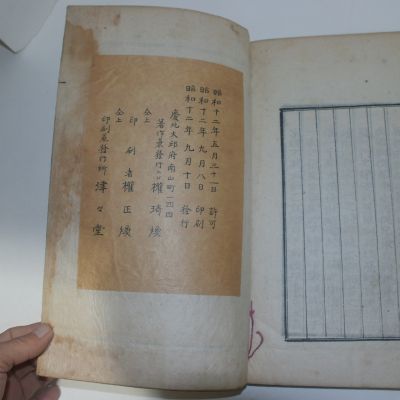 昭和十二年五月三十一日 許可
昭和十二年九月八日 印刷
昭和十二年九月十日 發行
慶北大邱府南山町一四四
著作兼發行人 權琦煥
仝上
印刷者 權正煥
仝上
印刷兼發行所 煒々堂